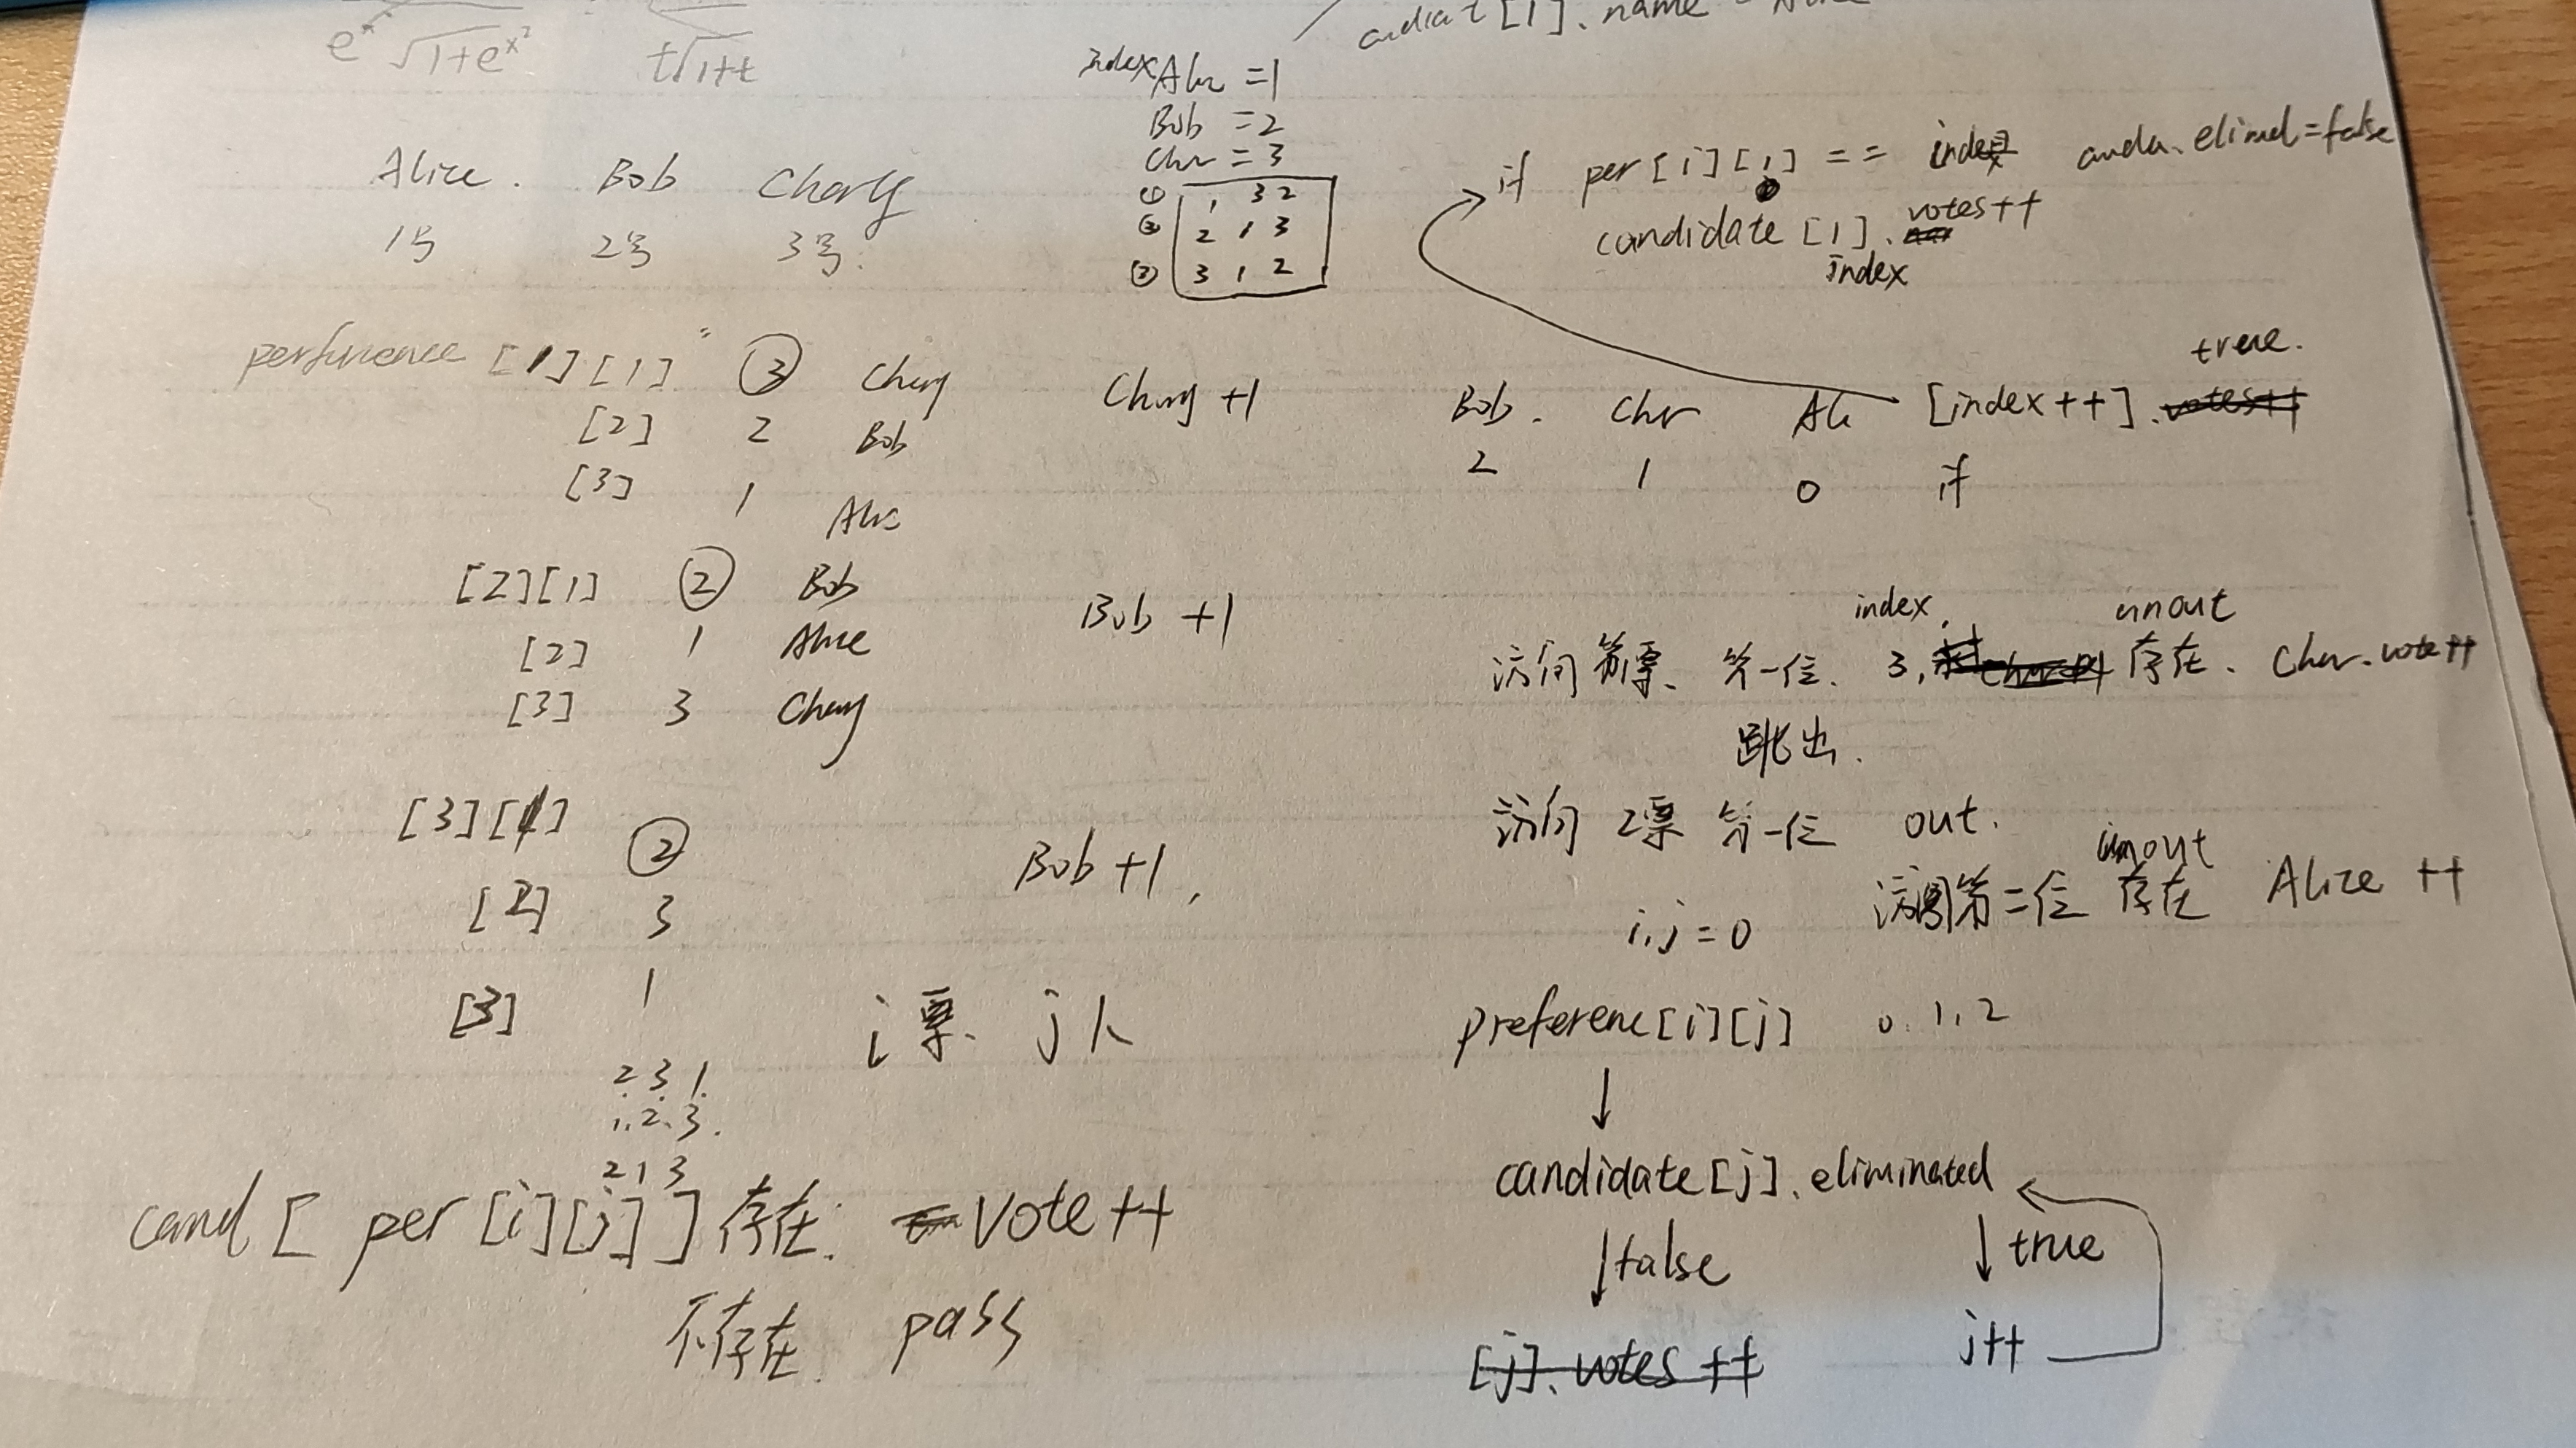 e^x √1+e^x² t√1+t
[1]. name
index =1
Bob =2
Chr = 3
① 1 3 2
② 2 1 3
③ 3 1 2
Alice. Bob Charly
1号 2号 3号.
if per[i][j] == index elimd=false
candidate [1]. votes++
index
perfurence [1][1] ③ Charly Charly +1
[2] 2 Bob
[3] 1 Alic
[2][1] ② Bob Bob +1
[2] 1 Alice
[3] 3 Charly
[3][1] ② Bob +1,
[2] 3
[3] 1
i票、j人
2 3 1.
1. 2. 3.
2 1 3
cand [ per [i][j] ] 存在: vote ++
不存在: pass
true.
Bob. Chr Ali [index++]. votes++
2 1 0 if
index. unout
访问 第一位、 3, 存在、 Char.vote++
跳出.
访问 2票 第一位 out.
unout
第二位 存在 Alice ++
i,j = 0
preferenc[i][j] 0. 1. 2
↓
candidate[j].eliminated
↓false ↓true
[j]. votes ++ j++